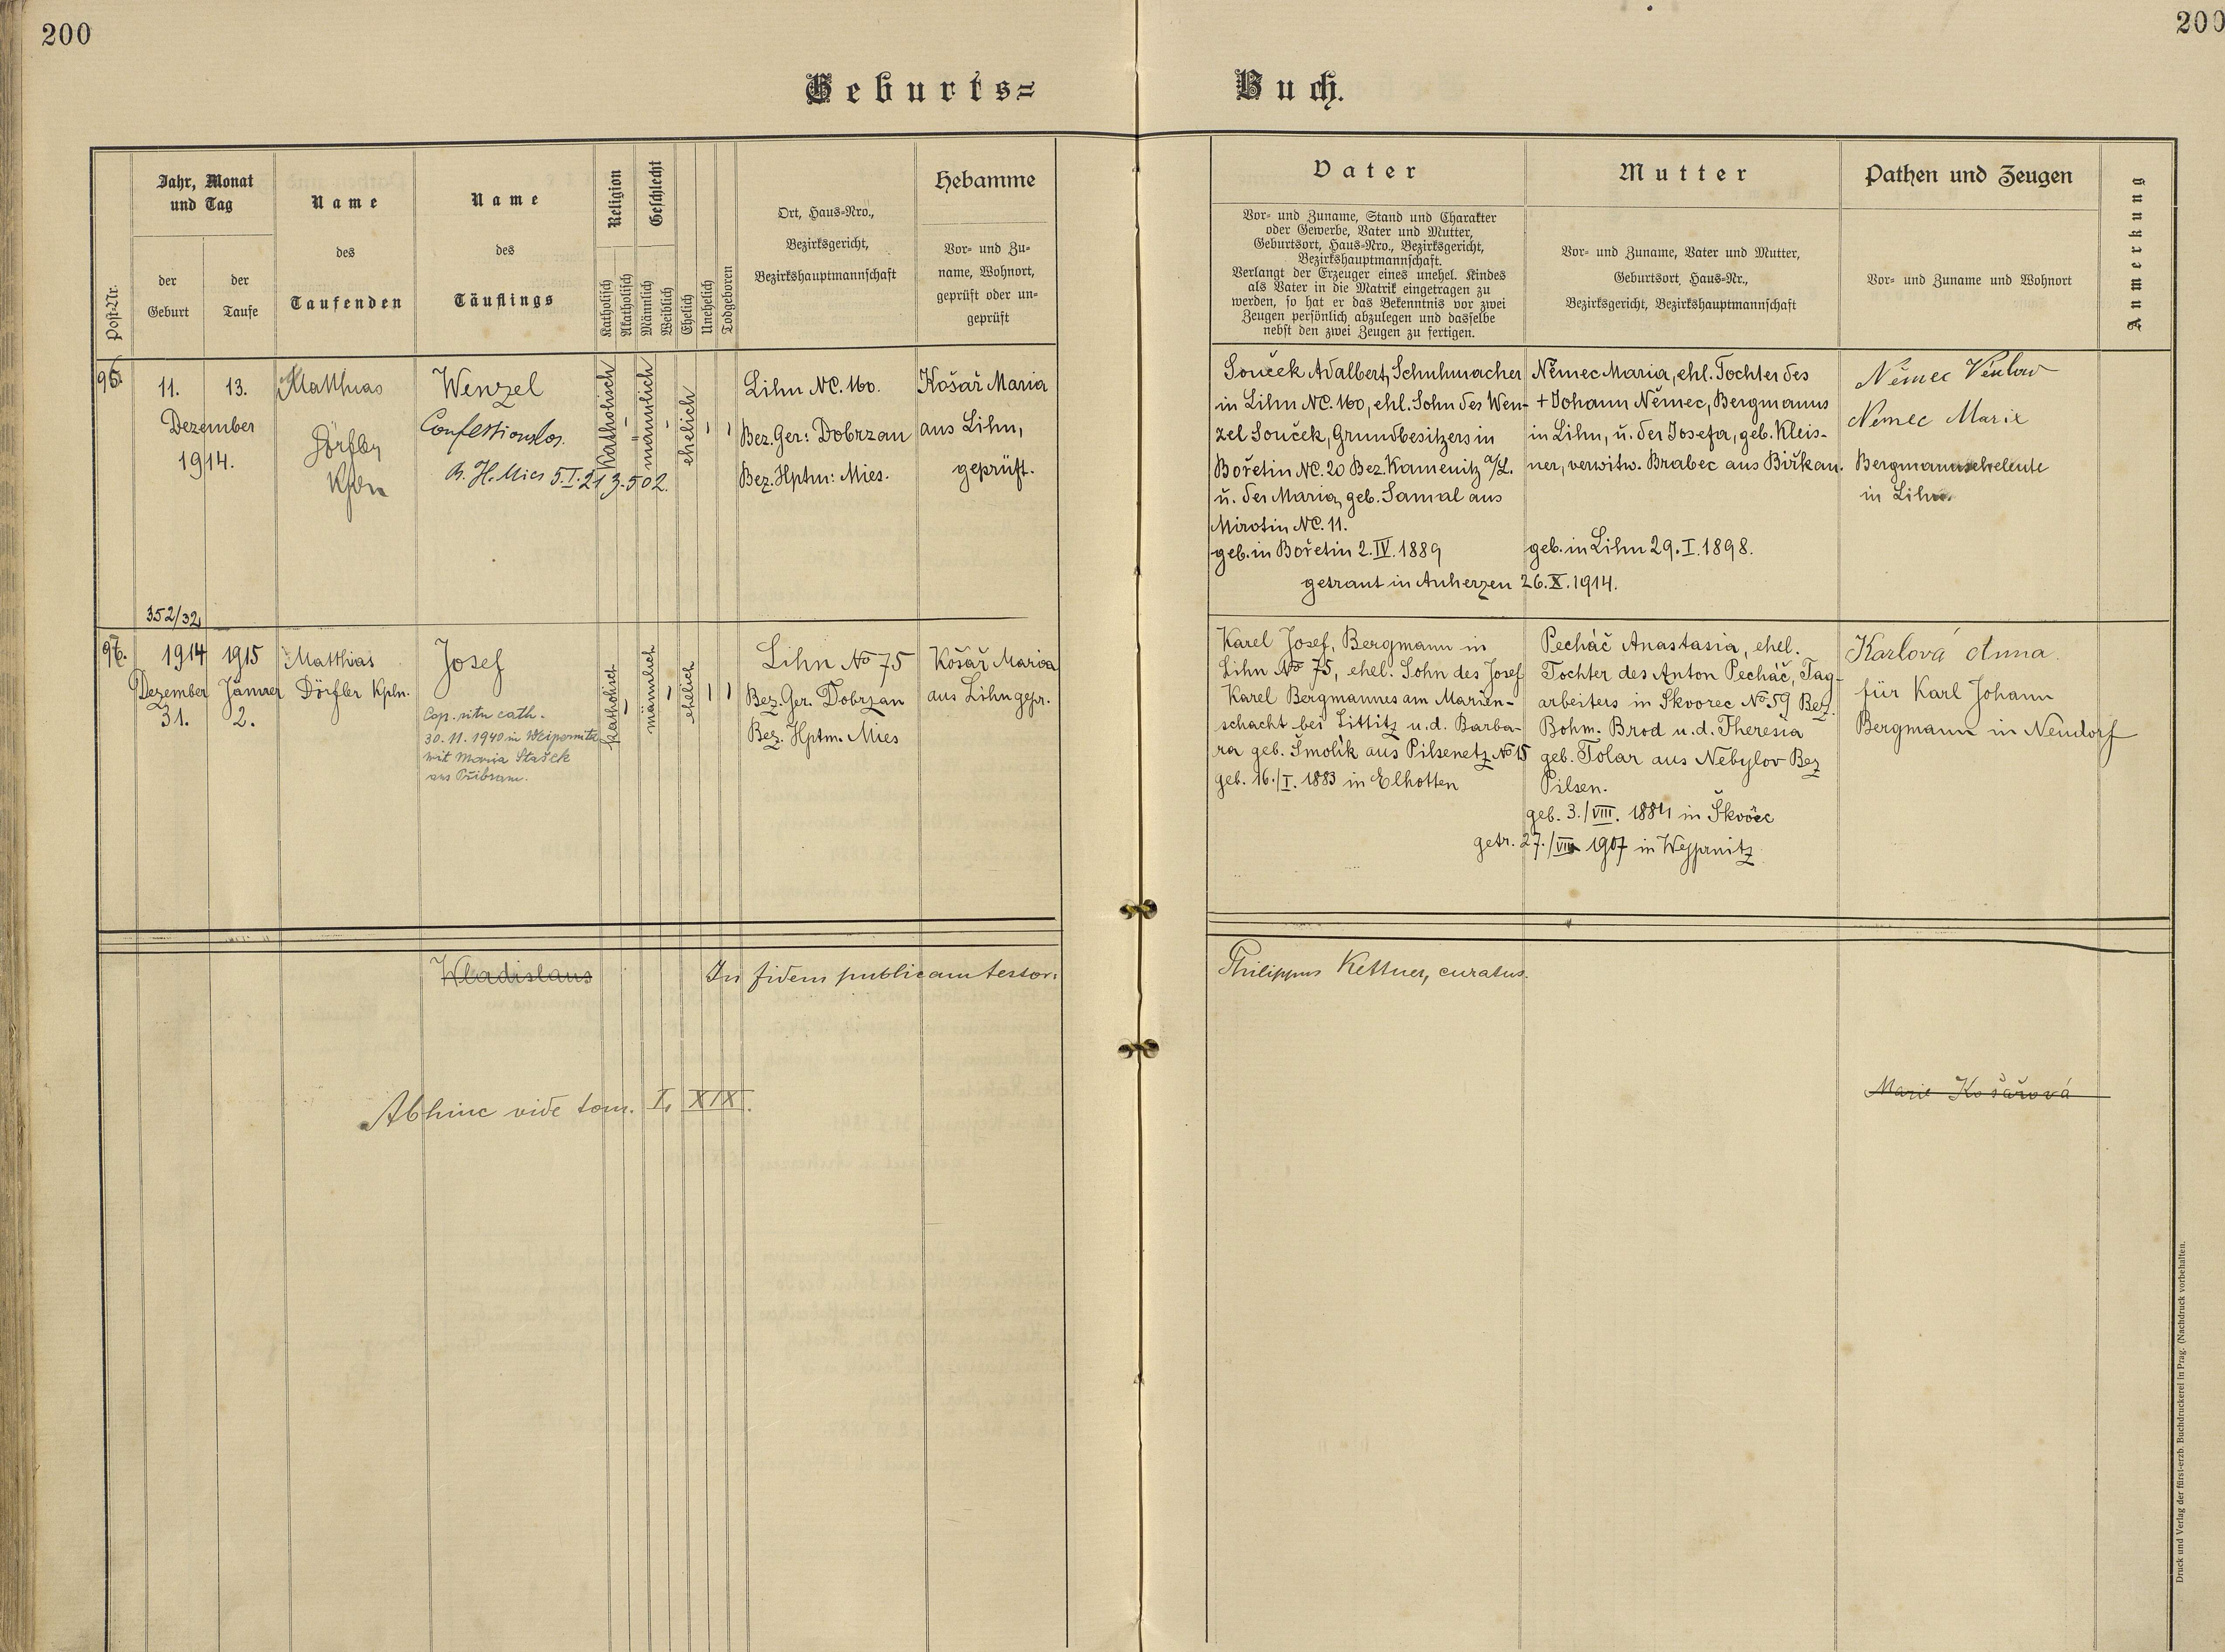 200
200
Geburts=
Buch.
Post-Nr.
Jahr, Monat
und Tag
der
Geburt
der
Taufe
Name
des
Taufenden
Name
des
Täuflings
Religion
Katholisch
Akatholisch
Geschlecht
Männlich
Weiblich
Ehelich
Unehelich
Todgeboren
Ort, Haus-Nro.,
Bezirksgericht,
Bezirkshauptmannschaft
Hebamme
Vor- und Zu-
name, Wohnort,
geprüft oder un-
geprüft
Vater
Vor- und Zuname, Stand und Charakter
oder Gewerbe, Vater und Mutter,
Geburtsort, Haus-Nro., Bezirksgericht,
Bezirkshauptmannschaft.
Verlangt der Erzeuger eines unehel. Kindes
als Vater in die Matrik eingetragen zu
werden, so hat er das Bekenntnis vor zwei
Zeugen persönlich abzulegen und dasselbe
nebst den zwei Zeugen zu fertigen.
Mutter
Vor- und Zuname, Vater und Mutter,
Geburtsort, Haus-Nr.,
Bezirksgericht, Bezirkshauptmannschaft
Pathen und Zeugen
Vor- und Zuname und Wohnort
Anmerkung
11. 13.
Dezember
1914.
352/32
Matthias
Dörfler
Kpln
Wenzel
Confessionslos.
B. H. Mies 5.I.21 3.502.
Katholisch
männlich
ehelich
Lihn NC. 160.
Bez. Ger: Dobrzan
Bez. Hptm: Mies.
Košař Maria
aus Lihn,
geprüft.
Souček Adalbert, Schuhmacher
in Lihn NC. 160, ehl. Sohn des Wen-
zel Souček, Grundbesitzers in
Bořetin NC. 20 Bez. Kamenitz a/L.
u. der Maria, geb. Samal aus
Mirotin NC. 11.
geb. in Bořetin 2.IV.1889
Němec Maria, ehl. Tochter des
+ Johann Němec, Bergmanns
in Lihn, u. der Josefa, geb. Kleis-
ner, verwitw. Brabec aus Birkau.
geb. in Lihn 29.I.1898.
getraut in Auherzen 26.X.1914.
Němec
Němec Marie
Bergmannseheleute
in Lihn.
97.
1914 1915
Dezember Jänner
31. 2.
Matthias
Dörfler Kpln.
Josef
Cop. ritu cath.
30.11.1940 in Weipernitz
mit Maria Stašek
aus Přibram.
katholisch
männlich
ehelich
Lihn No 75
Bez. Ger. Dobrzan
Bez. Hptm. Mies
Košař Maria
aus Lihn gepr.
Karel Josef, Bergmann in
Lihn No 75, ehel. Sohn des Josef
Karel Bergmannes am Marien-
schacht bei Littitz u. d. Barba-
ra geb. Smolík aus Pilsenetz No 15
geb. 16./I. 1883 in Elhotten
Pecháč Anastasia, ehel.
Tochter des Anton Pecháč, Tag-
arbeiters in Skvorec No 59 Bez.
Böhm. Brod u. d. Theresia
geb. Tolar aus Nebylov Bez
Pilsen.
geb. 3./VIII. 1884 in
getr. 27./VIII 1907 in Weyprnitz
Karlová Anna
für Karl Johann
Bergmann in Neudorf
Wladislaus
In fidem publicam testor:
Philippus Kettner, curatus.
Abhinc vide tom. I, XIX.
Marie Košařová
Druck und Verlag der fürst-erzb. Buchdruckerei in Prag. (Nachdruck vorbehalten.